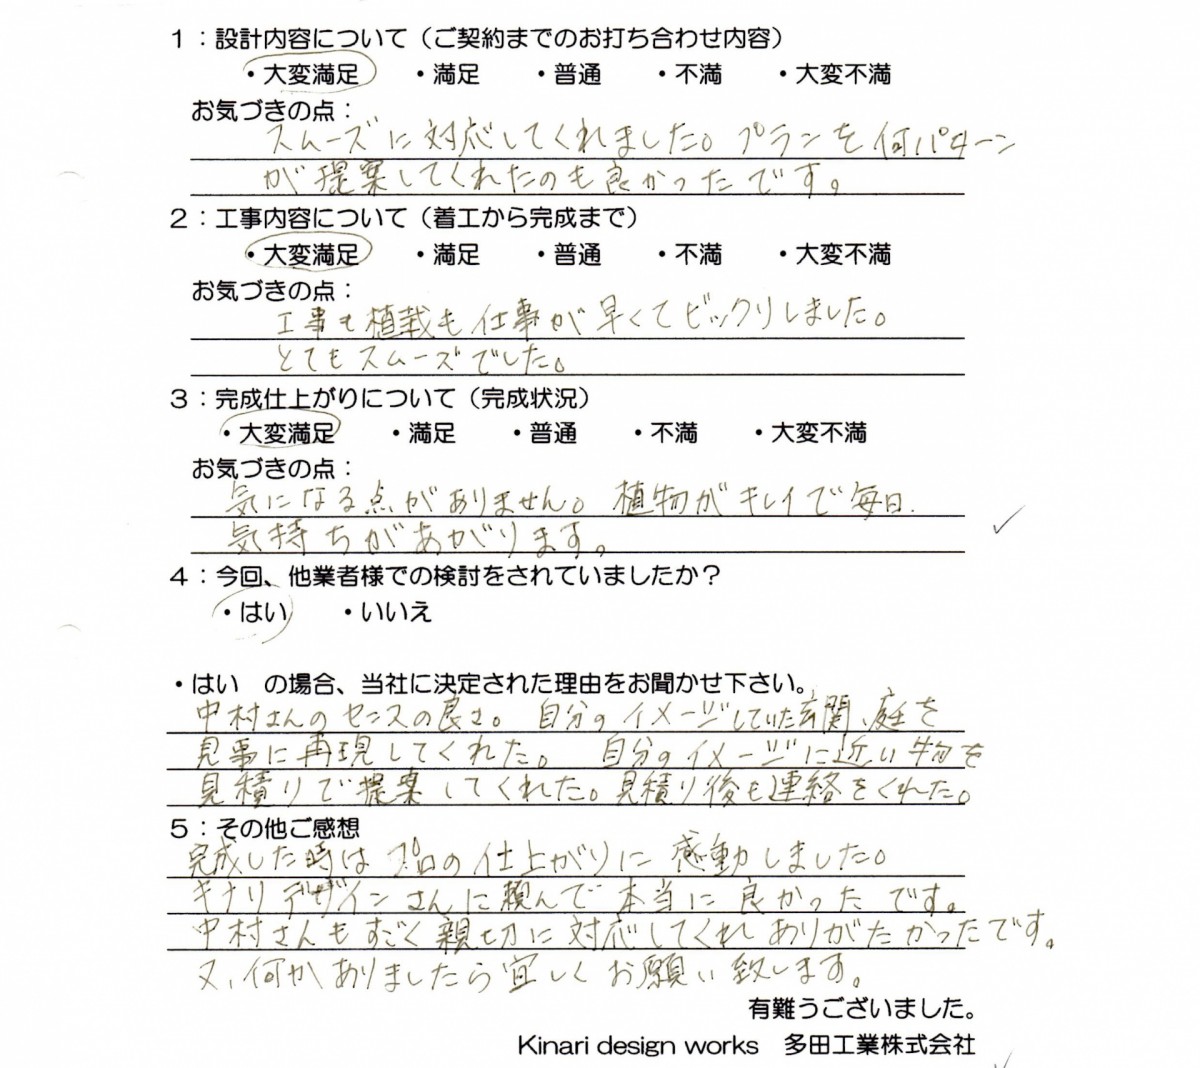 1：設計内容について（ご契約までのお打ち合わせ内容）
・大変満足　・満足　・普通　・不満　・大変不満
お気づきの点：
スムーズに対応してくれました。プランを何パターン
が提案してくれたのも良かったです。
2：工事内容について（着工から完成まで）
・大変満足　・満足　・普通　・不満　・大変不満
お気づきの点：
工事も植栽も仕事が早くてビックリしました。
とてもスムーズでした。
3：完成仕上がりについて（完成状況）
・大変満足　・満足　・普通　・不満　・大変不満
お気づきの点：
気になる点がありません。植物がキレイで毎日
気持ちがあがります。
4：今回、他業者様での検討をされていましたか？
・はい　・いいえ
・はい　の場合、当社に決定された理由をお聞かせ下さい。
中村さんのセンスの良さ。自分のイメージしていた玄関、庭を
見事に再現してくれた。自分のイメージに近い物を
見積りで提案してくれた。見積り後も連絡をくれた。
5：その他ご感想
完成した時はプロの仕上がりに感動しました。
キナリデザインさんに頼んで本当に良かったです。
中村さんもすごく親切に対応してくれありがたかったです。
又、何かありましたら宜しくお願い致します。
有難うございました。
Kinari design works　多田工業株式会社